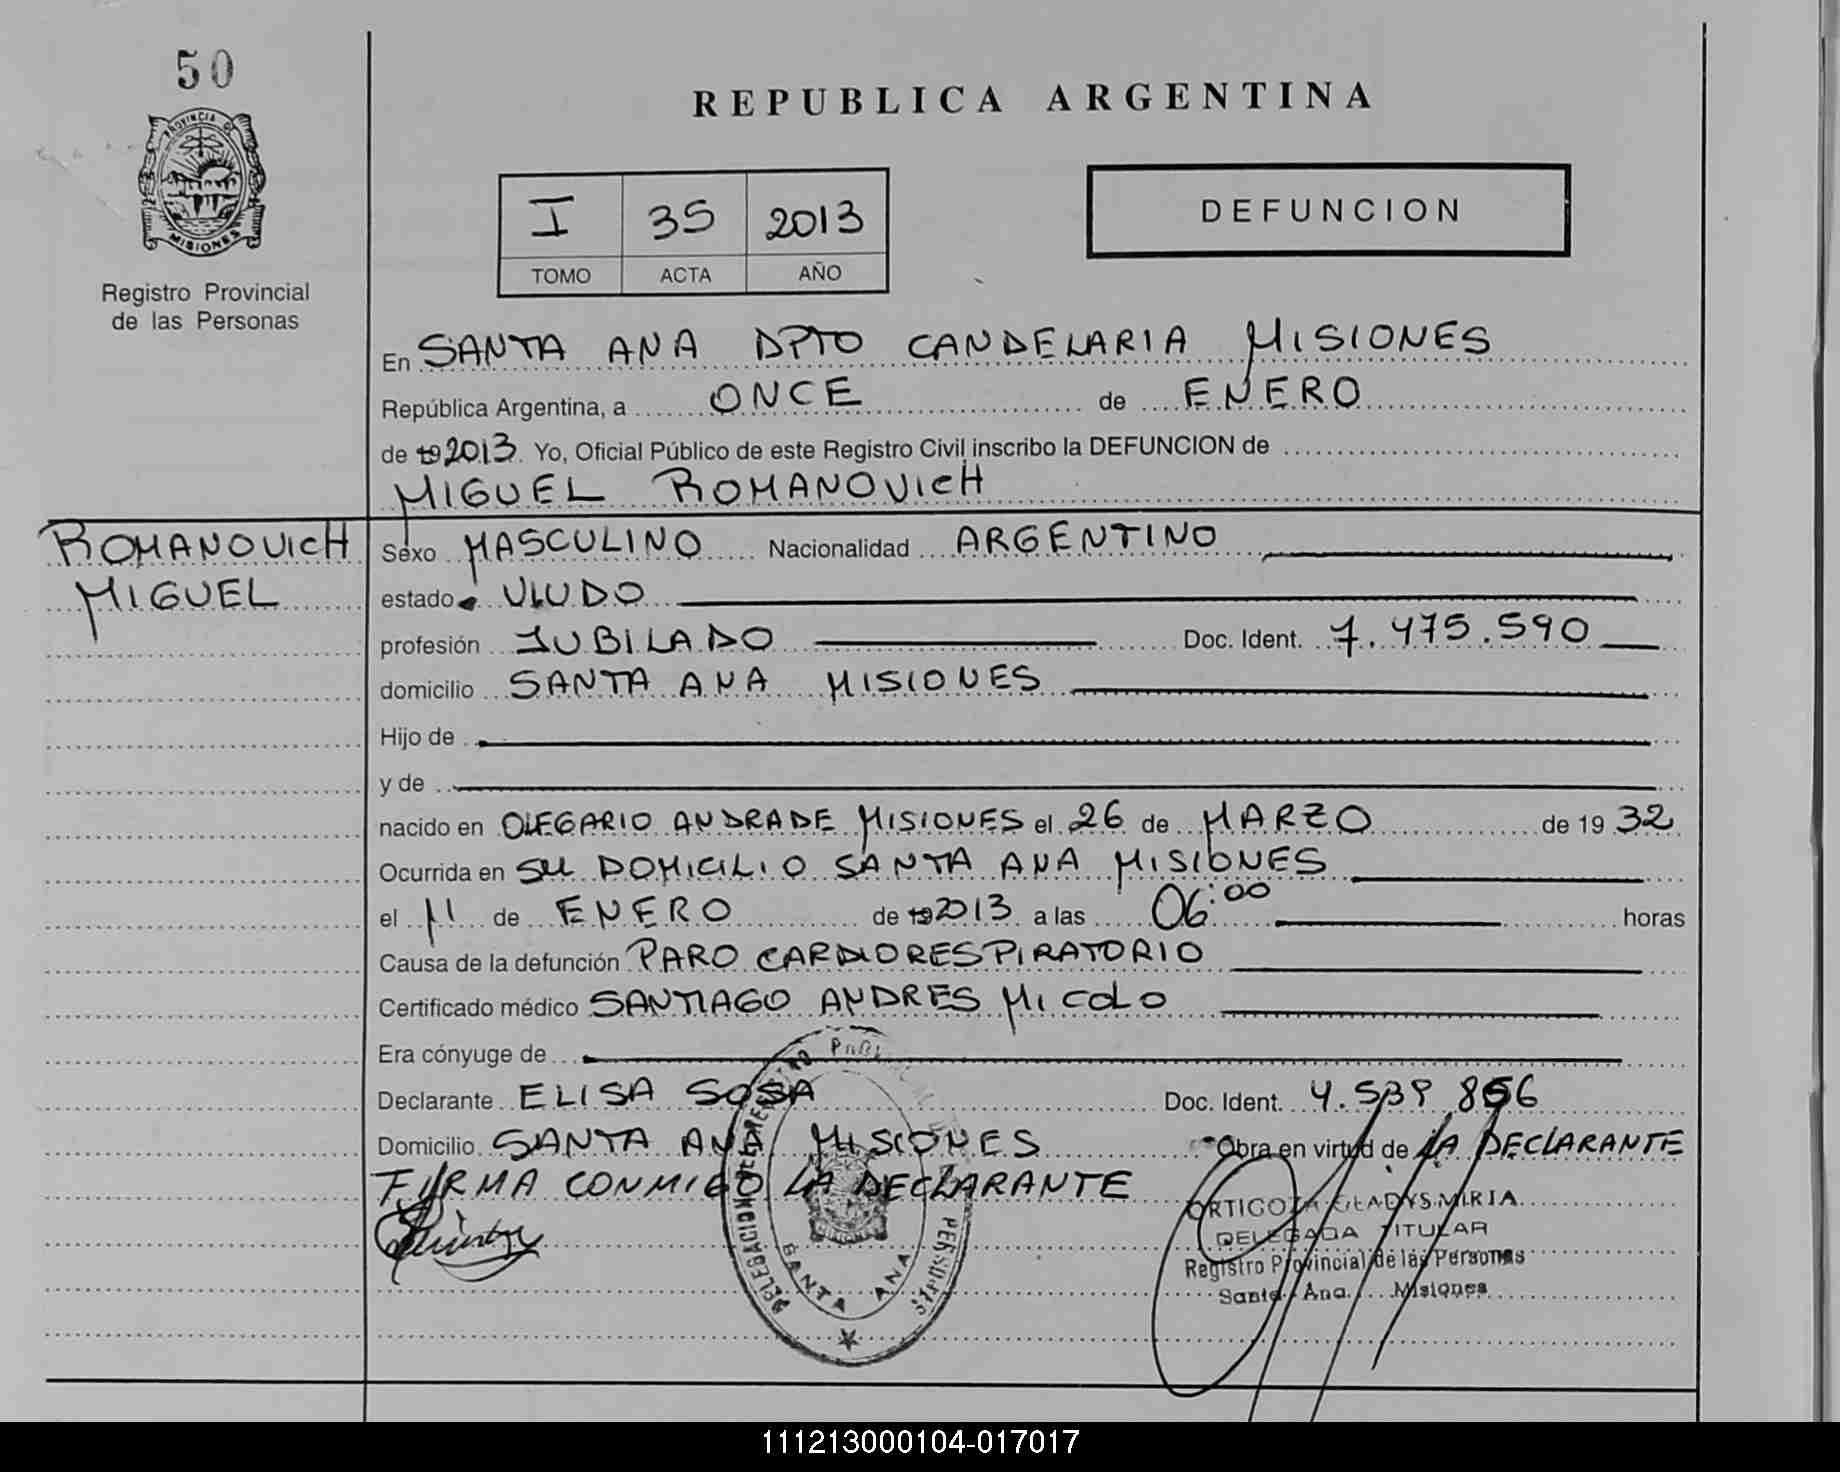 50
PROVINCIA DE
MISIONES
Registro Provincial
de las Personas
REPUBLICA ARGENTINA
I 35 2013
TOMO ACTA AÑO
DEFUNCION
En SANTA ANA DPTO CANDELARIA MISIONES
República Argentina, a ONCE de ENERO
de 19 2013. Yo, Oficial Público de este Registro Civil inscribo la DEFUNCION de
MIGUEL ROMANOVICH
ROMANOVICH
MIGUEL
Sexo MASCULINO Nacionalidad ARGENTINO
estado VIUDO
profesión JUBILADO Doc. Ident. 7.475.590
domicilio SANTA ANA MISIONES
Hijo de
y de
nacido en OLEGARIO ANDRADE MISIONES el 26 de MARZO de 19 32
Ocurrida en SU DOMICILIO SANTA ANA MISIONES
el 11 de ENERO de 19 2013 a las 06:00 horas
Causa de la defunción PARO CARDIORESPIRATORIO
Certificado médico SANTIAGO ANDRES MICOLO
Era cónyuge de
Declarante ELISA SOSA Doc. Ident.
Domicilio SANTA ANA MISIONES Obra en virtud de LA DECLARANTE
FIRMA CONMIGO LA DECLARANTE
SANTA ANA
ORTIGOZA GLADYS MIRIA
DELEGADA TITULAR
Registro Provincial de las Personas
Santa Ana Misiones
111213000104-017017